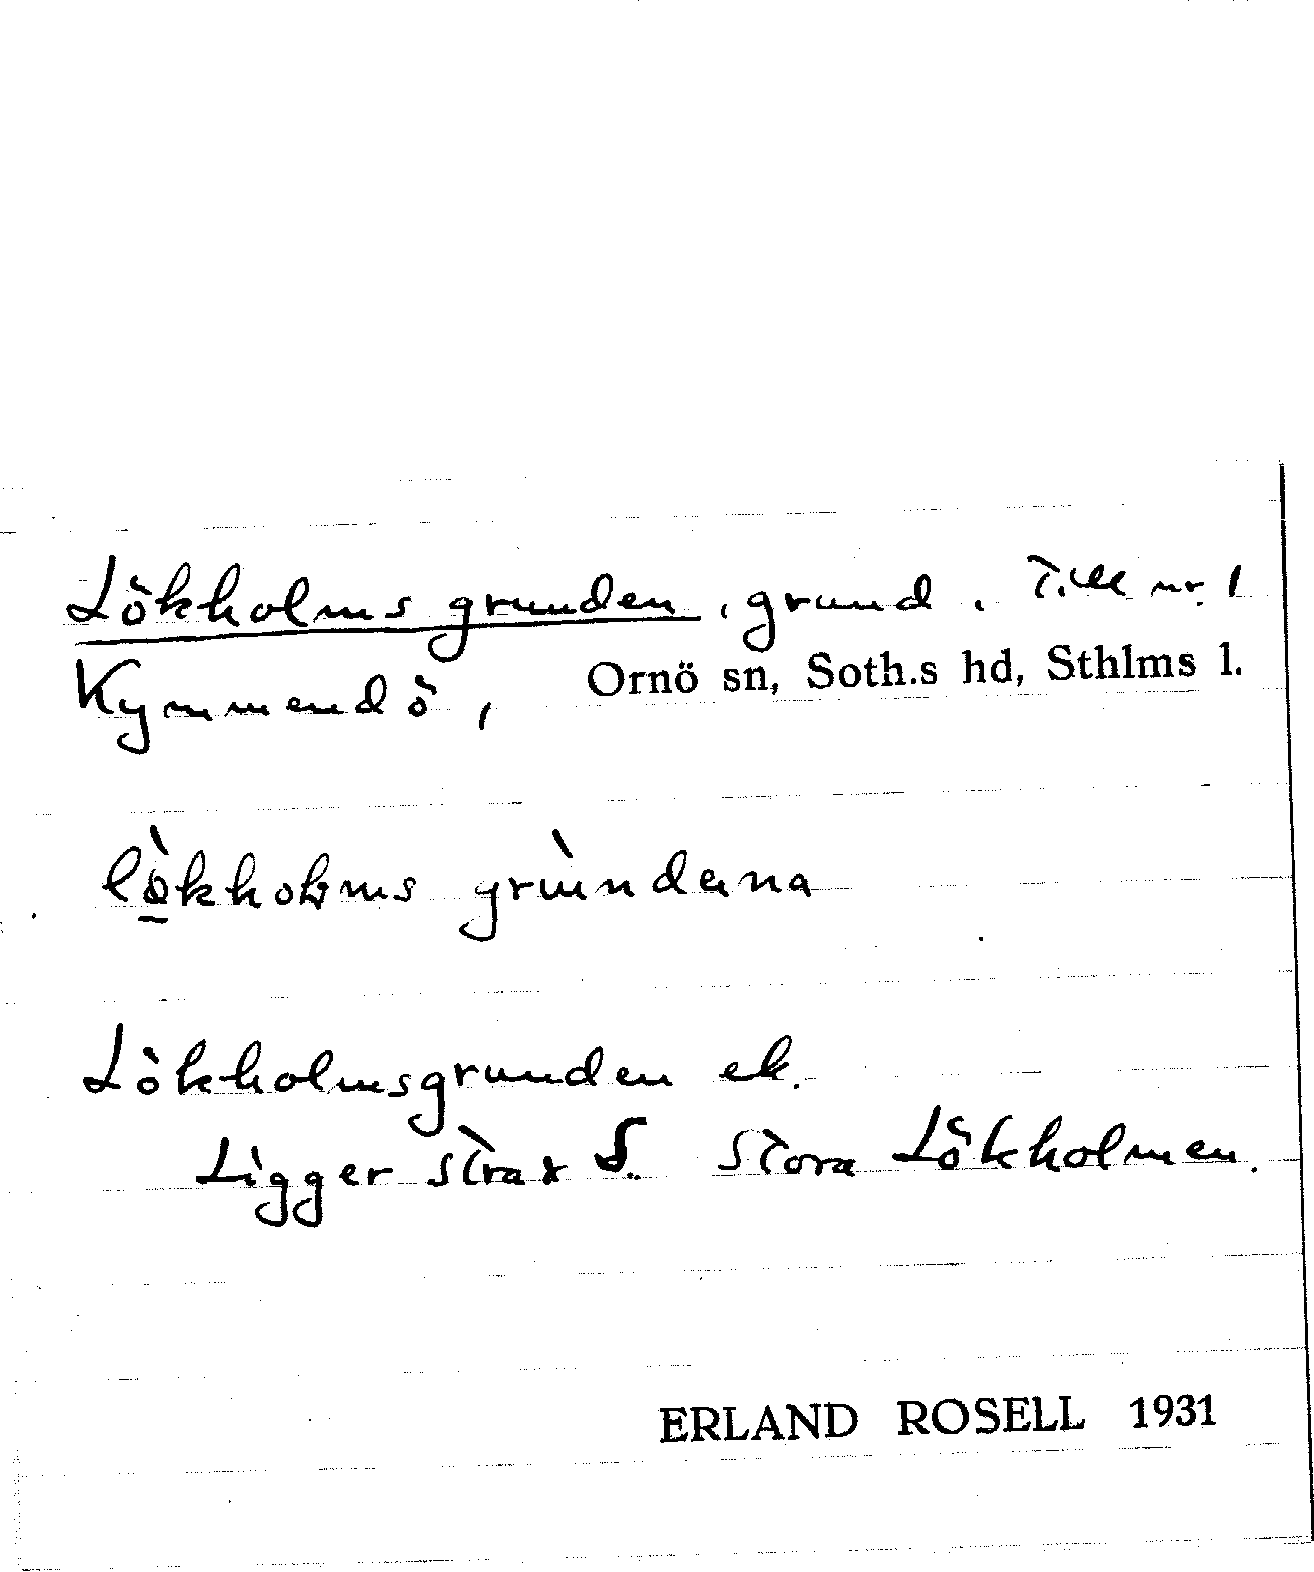 Lökholmsgrunden, grund. Till nr. 1
Kymmendö, Ornö sn, Soth.s hd, Sthlms l.
grùndena
Lökholmsgrunden ek.
Ligger strax S. Stora Lökholmen.
ERLAND ROSELL 1931